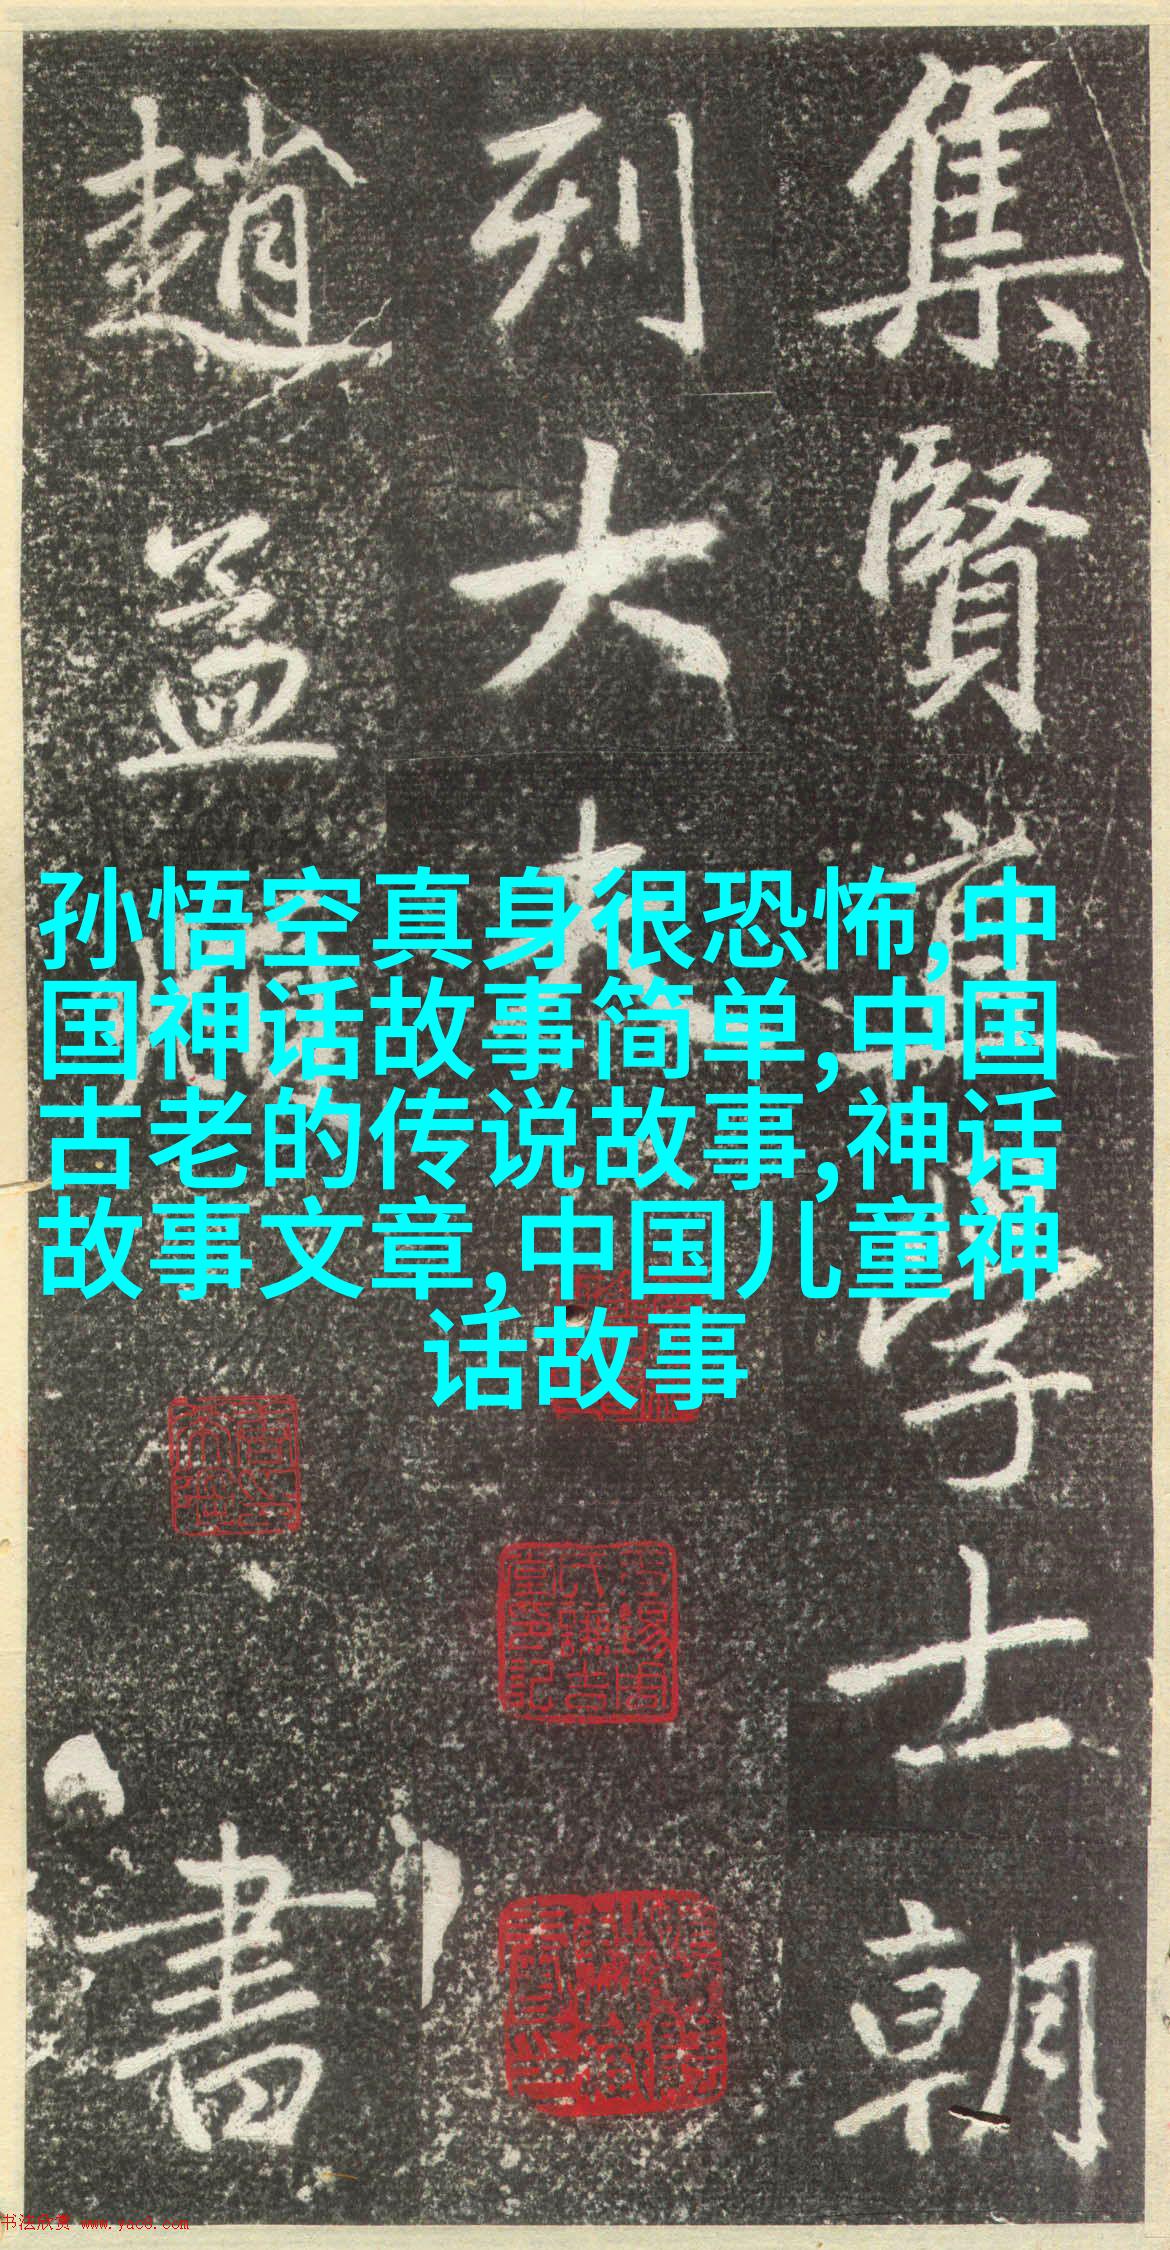 集賢直學士朝
列大夫
趙孟頫書
孙悟空真身很恐怖,中
国神话故事简单,中国
古老的传说故事,神话
故事文章,中国儿童神
话故事
书法欣赏 www.yac8.com